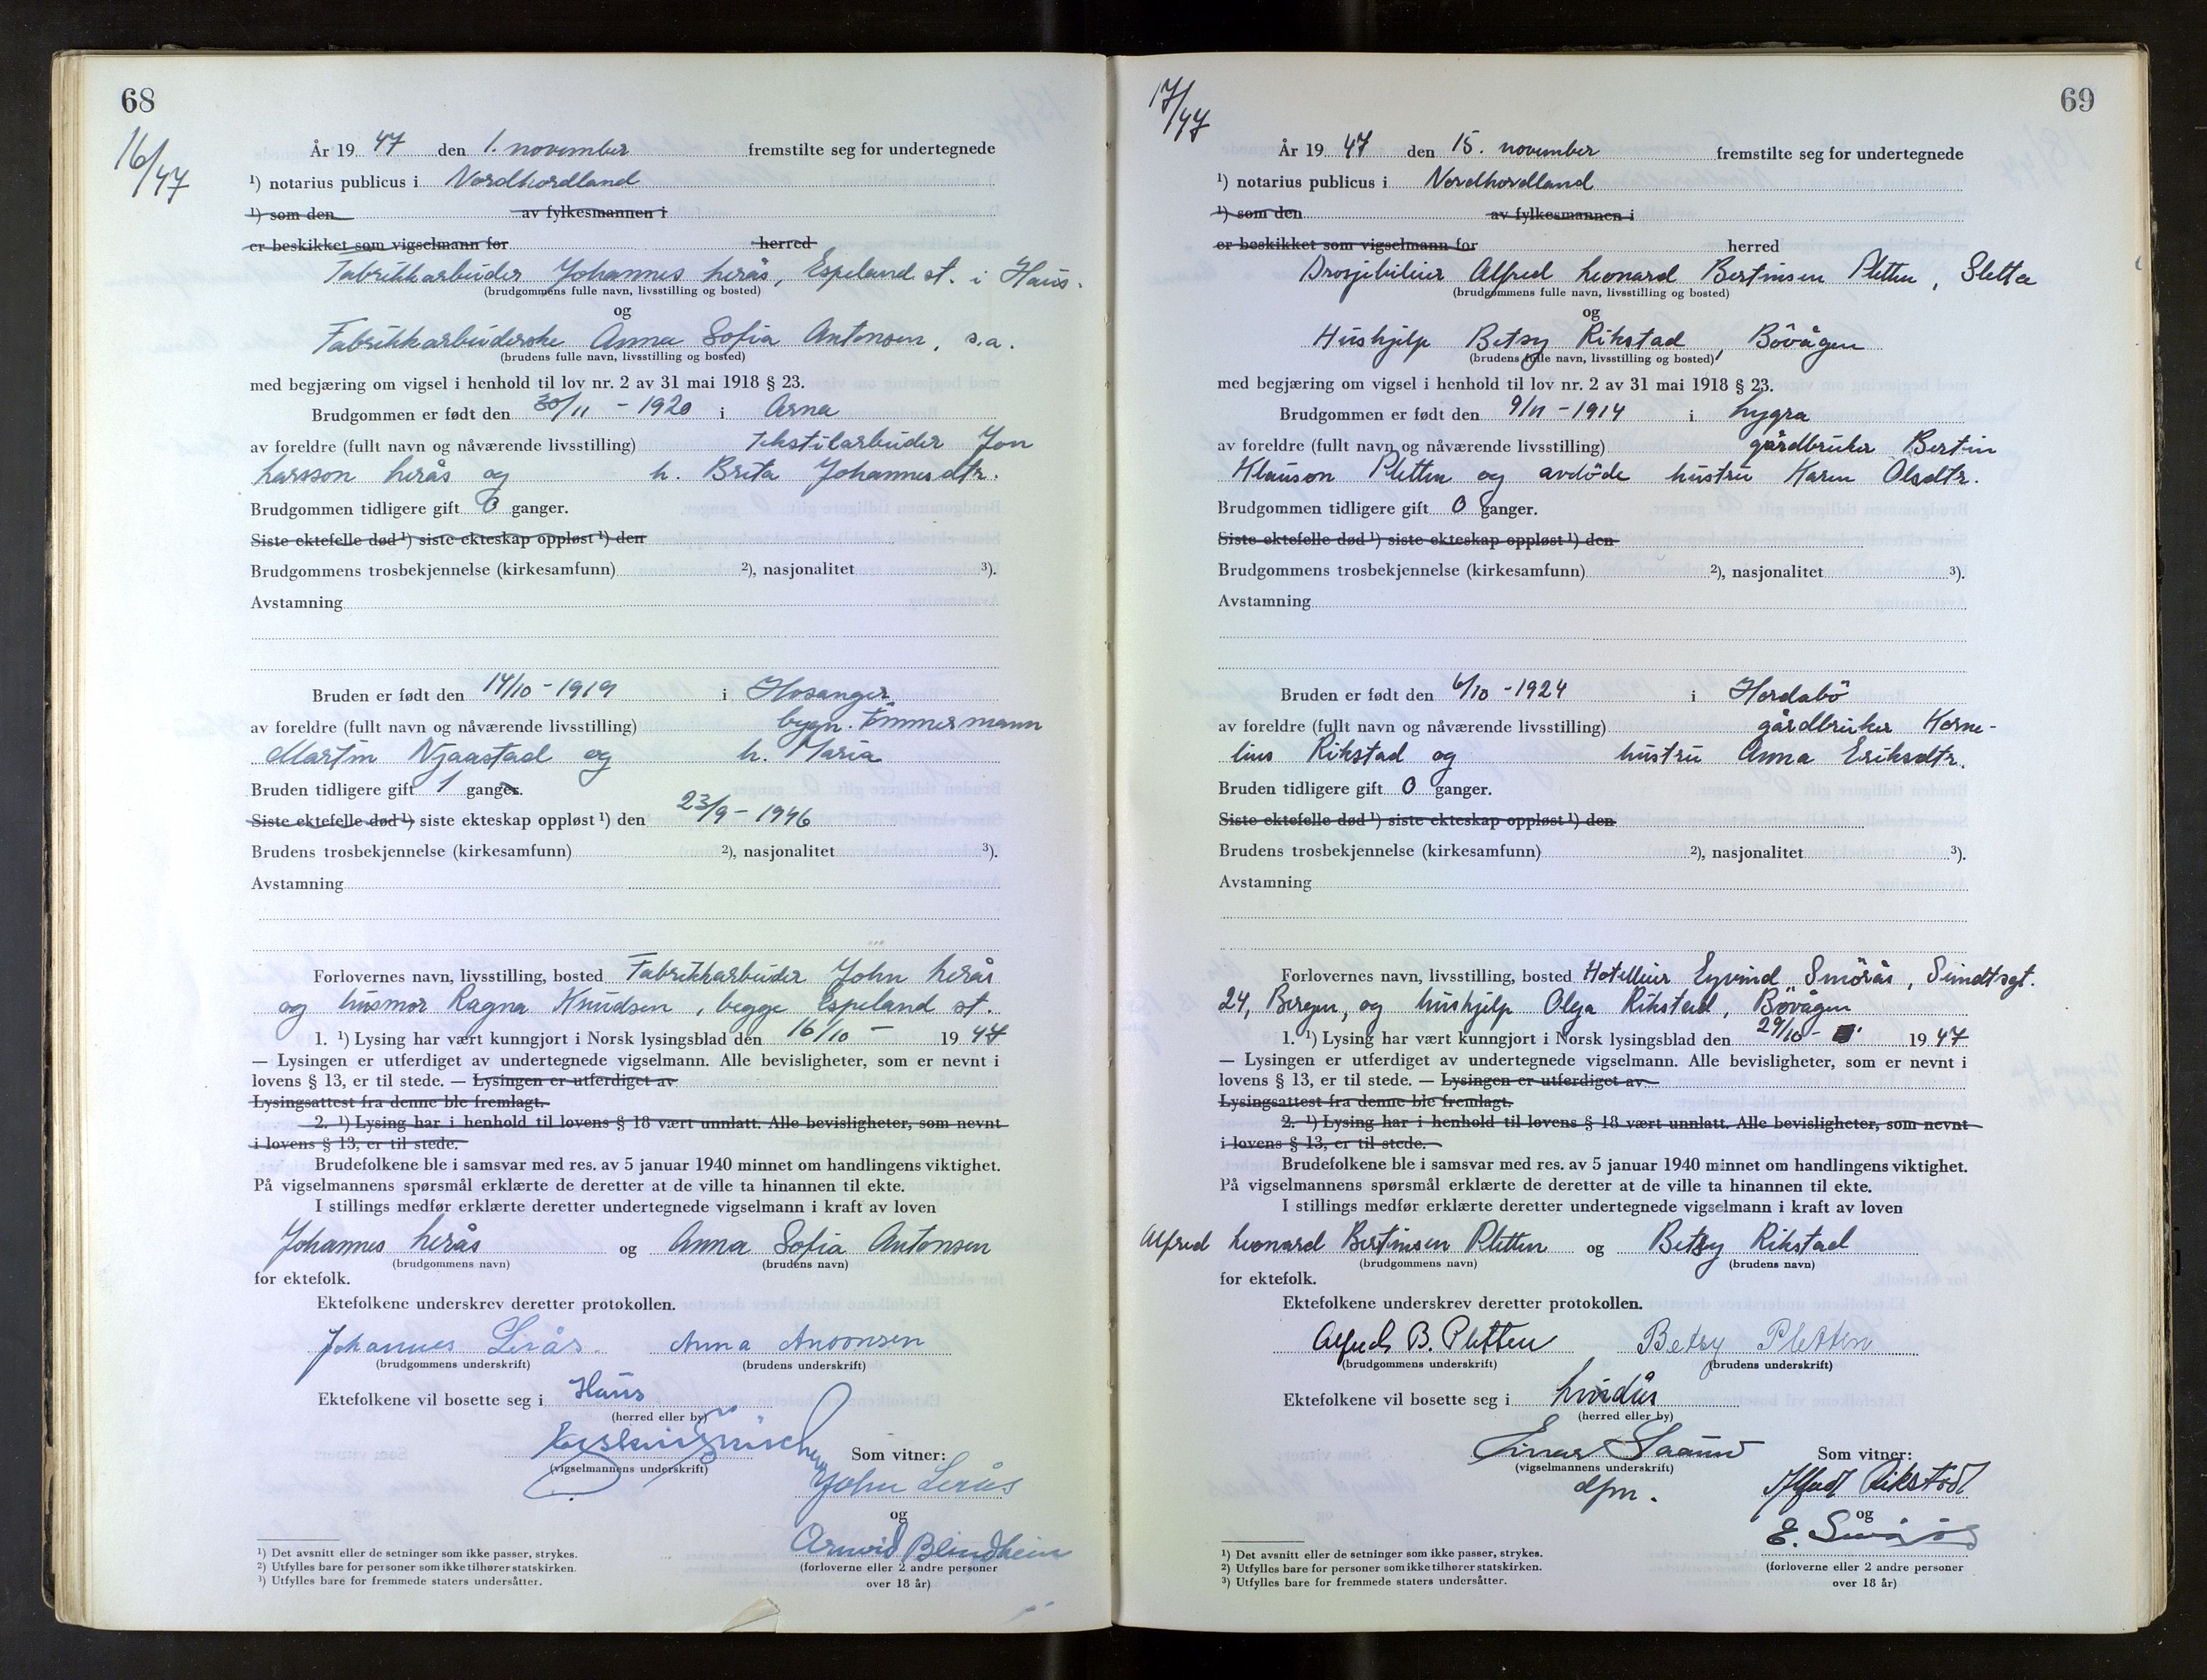 68
16/47
År 1947 den 1. november fremstilte seg for undertegnede
¹) notarius publicus i Nordhordland
¹) som den av fylkesmannen i
er beskikket som vigselmann for herred
Fabrikkarbeider Johannes Lerås, Espeland st. i Haus.
(brudgommens fulle navn, livsstilling og bosted)
og
Fabrikkarbeiderske Anna Sofia Antonsen, s.a.
(brudens fulle navn, livsstilling og bosted)
med begjæring om vigsel i henhold til lov nr. 2 av 31 mai 1918 § 23.
Brudgommen er født den 30/11 - 1920 i Arna
av foreldre (fullt navn og nåværende livsstilling) tekstilarbeider Jon
Larsson Lerås og h. Brita Johannesdtr.
Brudgommen tidligere gift 0 ganger.
Siste ektefelle død ¹) siste ekteskap oppløst ¹) den
Brudgommens trosbekjennelse (kirkesamfunn) ²), nasjonalitet ³).
Avstamning
Bruden er født den 14/10 - 1919 i Hosanger
av foreldre (fullt navn og nåværende livsstilling) bygn. tömmermann
Martin Njaastad og h. Maria
Bruden tidligere gift 1 ganger.
Siste ektefelle død ¹) siste ekteskap oppløst ¹) den 23/9 - 1946
Brudens trosbekjennelse (kirkesamfunn) ²), nasjonalitet ³).
Avstamning
Forlovernes navn, livsstilling, bosted Fabrikkarbeider John Lerås
og husmor Ragna Knudsen, begge Espeland st.
1. ¹) Lysing har vært kunngjort i Norsk lysingsblad den 16/10 - 1947
— Lysingen er utferdiget av undertegnede vigselmann. Alle bevisligheter, som er nevnt i
lovens § 13, er til stede. — Lysingen er utferdiget av
Lysingsattest fra denne ble fremlagt.
2. ¹) Lysing har i henhold til lovens § 18 vært unnlatt. Alle bevisligheter, som nevnt
i lovens § 13, er til stede.
Brudefolkene ble i samsvar med res. av 5 januar 1940 minnet om handlingens viktighet.
På vigselmannens spørsmål erklærte de deretter at de ville ta hinannen til ekte.
I stillings medfør erklærte deretter undertegnede vigselmann i kraft av loven
Johannes Lerås og Anna Sofia Antonsen
(brudgommens navn) (brudens navn)
for ektefolk.
Ektefolkene underskrev deretter protokollen.
Johannes Lerås. Anna Antonsen
(brudgommens underskrift) (brudens underskrift)
Ektefolkene vil bosette seg i Haus
(herred eller by)
Som vitner:
(vigselmannens underskrift)
John Lerås
og
Arnvid Blindheim
(forloverne eller 2 andre personer
over 18 år)
¹) Det avsnitt eller de setninger som ikke passer, strykes.
²) Utfylles bare for personer som ikke tilhører statskirken.
³) Utfylles bare for fremmede staters undersåtter.
69
17/47
År 1947 den 15. november fremstilte seg for undertegnede
¹) notarius publicus i Nordhordland
¹) som den av fylkesmannen i
er beskikket som vigselmann for herred
Drosjebileier Alfred Leonard Bertinsen Pletten, Sletta
(brudgommens fulle navn, livsstilling og bosted)
og
Hushjelp Betsy Rikstad, Bövågen
(brudens fulle navn, livsstilling og bosted)
med begjæring om vigsel i henhold til lov nr. 2 av 31 mai 1918 § 23.
Brudgommen er født den 9/11 - 1914 i Lygra
av foreldre (fullt navn og nåværende livsstilling) gårdbruker Bertin
Klauson Pletten og avdöde hustru Karen Olsdtr.
Brudgommen tidligere gift 0 ganger.
Siste ektefelle død ¹) siste ekteskap oppløst ¹) den
Brudgommens trosbekjennelse (kirkesamfunn) ²), nasjonalitet ³).
Avstamning
Bruden er født den 6/10 - 1924 i Herdabö
av foreldre (fullt navn og nåværende livsstilling) gårdbruker Korne-
lius Rikstad og hustru Anna Eriksdtr.
Bruden tidligere gift 0 ganger.
Siste ektefelle død ¹) siste ekteskap oppløst ¹) den
Brudens trosbekjennelse (kirkesamfunn) ²), nasjonalitet ³).
Avstamning
Forlovernes navn, livsstilling, bosted Hotelleier Eyvind Smörås, Sundtsgt.
24, Bergen, og hushjelp Olga Rikstad, Bövågen
1. ¹) Lysing har vært kunngjort i Norsk lysingsblad den 29/10 - 1947
— Lysingen er utferdiget av undertegnede vigselmann. Alle bevisligheter, som er nevnt i
lovens § 13, er til stede. — Lysingen er utferdiget av
Lysingsattest fra denne ble fremlagt.
2. ¹) Lysing har i henhold til lovens § 18 vært unnlatt. Alle bevisligheter, som nevnt
i lovens § 13, er til stede.
Brudefolkene ble i samsvar med res. av 5 januar 1940 minnet om handlingens viktighet.
På vigselmannens spørsmål erklærte de deretter at de ville ta hinannen til ekte.
I stillings medfør erklærte deretter undertegnede vigselmann i kraft av loven
Alfred Leonard Bertinsen Pletten og Betsy Rikstad
(brudgommens navn) (brudens navn)
for ektefolk.
Ektefolkene underskrev deretter protokollen.
Alfred B. Pletten Betsy Pletten
(brudgommens underskrift) (brudens underskrift)
Ektefolkene vil bosette seg i Lindås
(herred eller by)
Einar Som vitner:
(vigselmannens underskrift)
dfm.
Rikstad
og
E. Smörås
(forloverne eller 2 andre personer
over 18 år)
¹) Det avsnitt eller de setninger som ikke passer, strykes.
²) Utfylles bare for personer som ikke tilhører statskirken.
³) Utfylles bare for fremmede staters undersåtter.